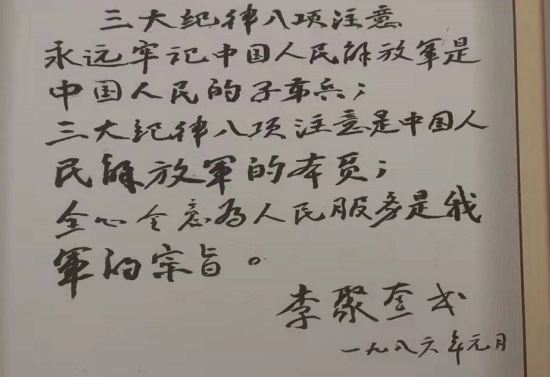 三大纪律八项注意
永远牢记中国人民解放軍是
中国人民的子弟兵；
三大纪律八项注意是中国人
民解放軍的本质；
全心全意为人民服务是我
軍的宗旨。
李聚奎书
一九八六年元月